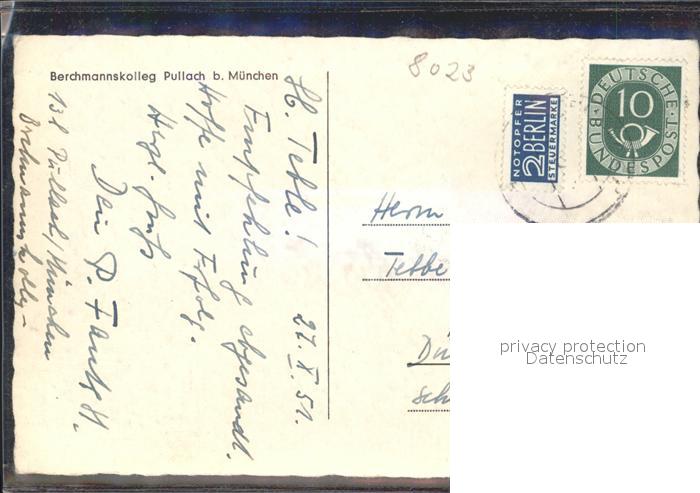 Berchmannskolleg Pullach b. München
8023
NOTOPFER
2 BERLIN
STEUERMARKE
DEUTSCHE
10
BUNDESPOST
27. X. 51.
Lb. Tebbe!
Empfehlung abgesandt.
Hoffe mit Erfolg.
Herzl. Gruß
Dein P.
13b Pullach/München
Herrn
Tebbe
Dü
Sch
privacy protection
Datenschutz